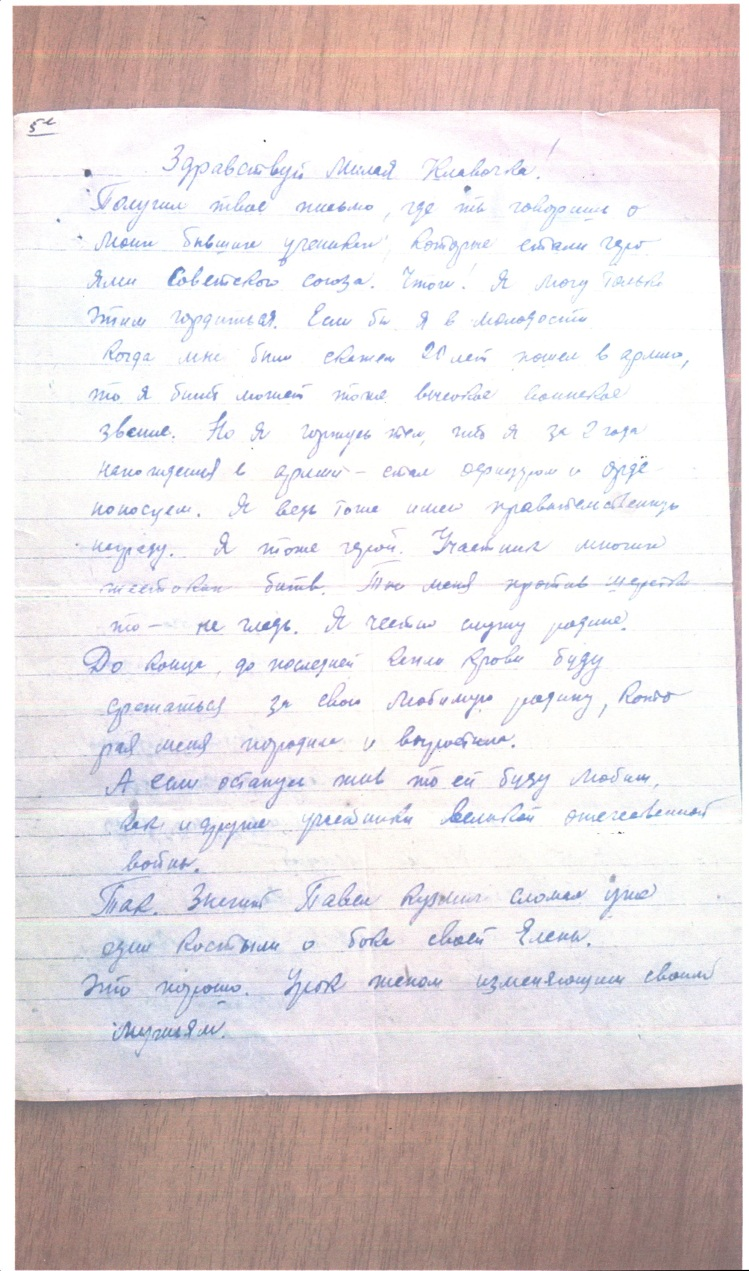 5й
Здравствуй Милая Клавочка!
Получил твое письмо, где ты говоришь о
моих бывших учениках, которые стали геро
ями Советского союза. Чтож! Я могу только
этим гордиться. Если бы я в молодости
когда мне было скажем 20 лет пошел в армию,
то я быть может тоже высокое воинское
звание. Но я горжусь тем, что я за 2 года
нахождения в армии – стал офицером и орде
ноносцем. Я ведь тоже имею правительственную
награду. Я тоже герой. Участник многих
жестоких битв. меня против шерсти
то — не гладь. Я честно служу родине.
До конца, до последней капли крови буду
сражаться за свою любимую родину, кото
рая меня породила и вырастила.
А если останусь жив то ей буду любим,
как и другие участники великой отечественной
войны.
Так. Значит Павел Кузьмич сломал уже
один костыль о бока своей Елены.
Это хорошо. Урок женам изменяющим своим
мужьям.